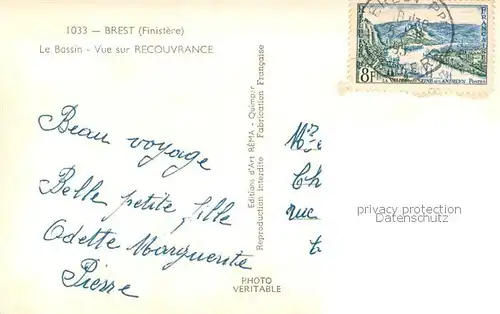 1033 — BREST (Finistère)
Le Bassin - Vue sur RECOUVRANCE
Beau voyage
Belle petite fille
Odette Marguerite
Pierre
Editions d'Art RÉMA - Quimper
Reproduction Interdite Fabrication Française
PHOTO
VERITABLE
8F
Postes
Ch
rue
privacy protection
Datenschutz